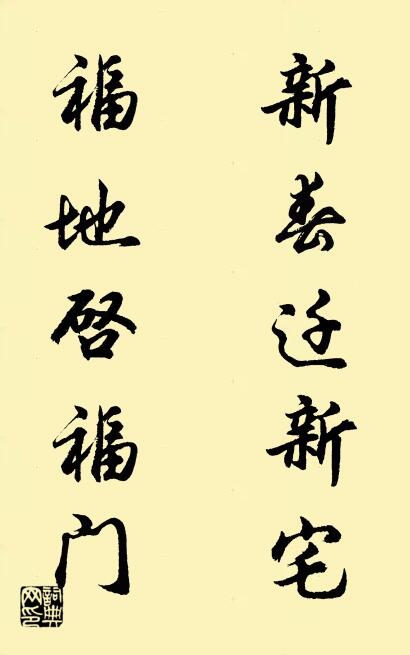 新春迁新宅
福地启福门